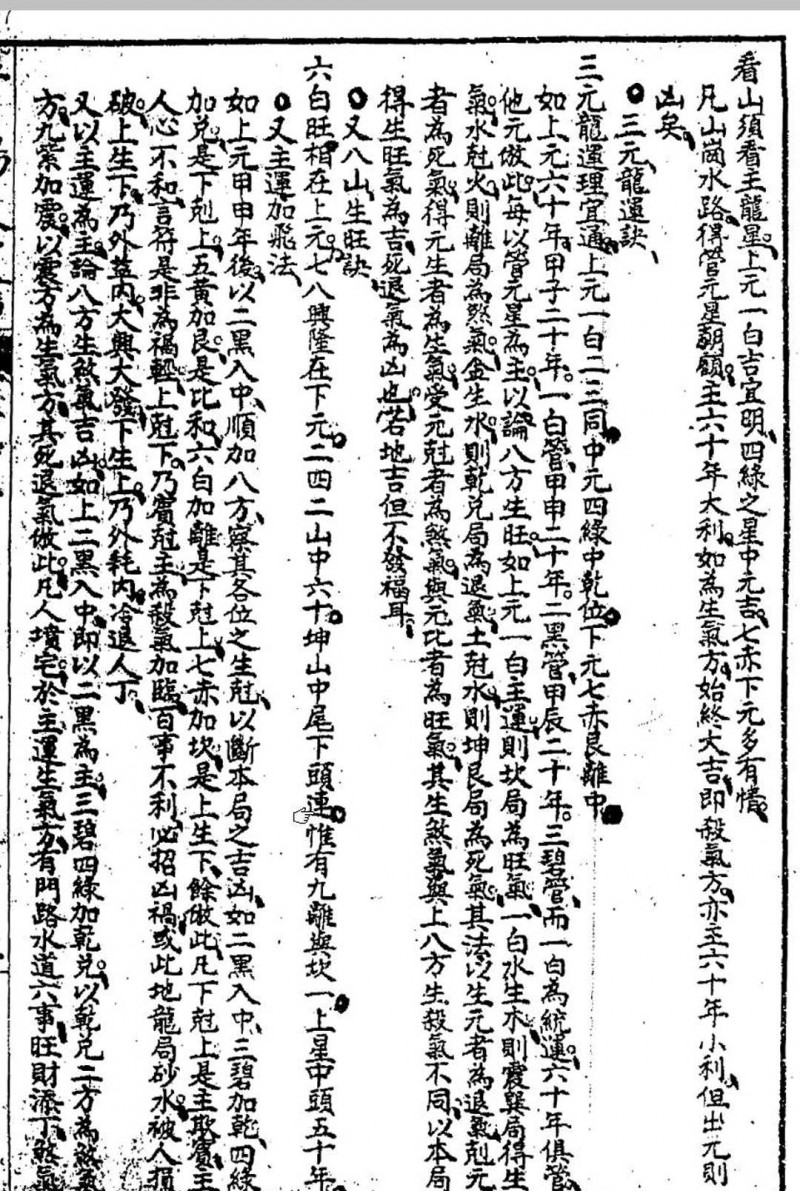 看山須看主龍星上元一白吉宜明四綠之星中元吉七赤下元多有情
凡山崗水路得管元星朝顧主六十年大利如為生氣方始終大吉即殺氣方亦主六十年小利但出元則
凶矣
三元龍運訣
三元龍運理宜通上元一白二三同中元四綠中乾位下元七赤艮離中
如上元六十年甲子二十年一白管甲申二十年二黑管甲辰二十年三碧管而一白為統運六十年俱管
他元倣此每以管元星為主以論八方生旺如上元一白主運則坎局為旺氣一白水生木則震巽局得生
氣水尅火則離局為煞氣金生水則乾兌局為退氣土尅水則坤艮局為死氣其法以生元者為退氣尅元
者為死氣得元生者為生氣受元尅者為煞氣與元比者為旺氣其生煞氣與上八方生殺氣不同以本局
得生旺氣為吉死退氣為凶也若地吉但不發福耳
又八山生旺訣
六白旺相在上元七八興隆在下元二四二山中六十坤山中尾下頭連惟有九離與坎一上星中頭五十年
又主運加飛法
如上元甲申年後以二黑入中順加八方察其各位之生尅以斷本局之吉凶如二黑入中三碧加乾四綠
加兌是下尅上五黃加艮是比和六白加離是下尅上七赤加坎是上生下餘倣此凡下尅上是主欺賓主
人心不和言符是非為禍輕上尅下乃賓尅主為殺氣加臨百事不利必招凶禍或此地龍局砂水被人損
破上生下乃外益內大興大發下生上乃外耗內冷退人丁
又以主運為主論八方生煞氣吉凶如上二黑入中即以二黑為主三碧四綠加乾兌以乾兌二方為煞氣
方九紫加震以震方為生氣方其死退氣倣此凡人墳宅於主運生氣方有門路水道六事旺財添丁煞氣